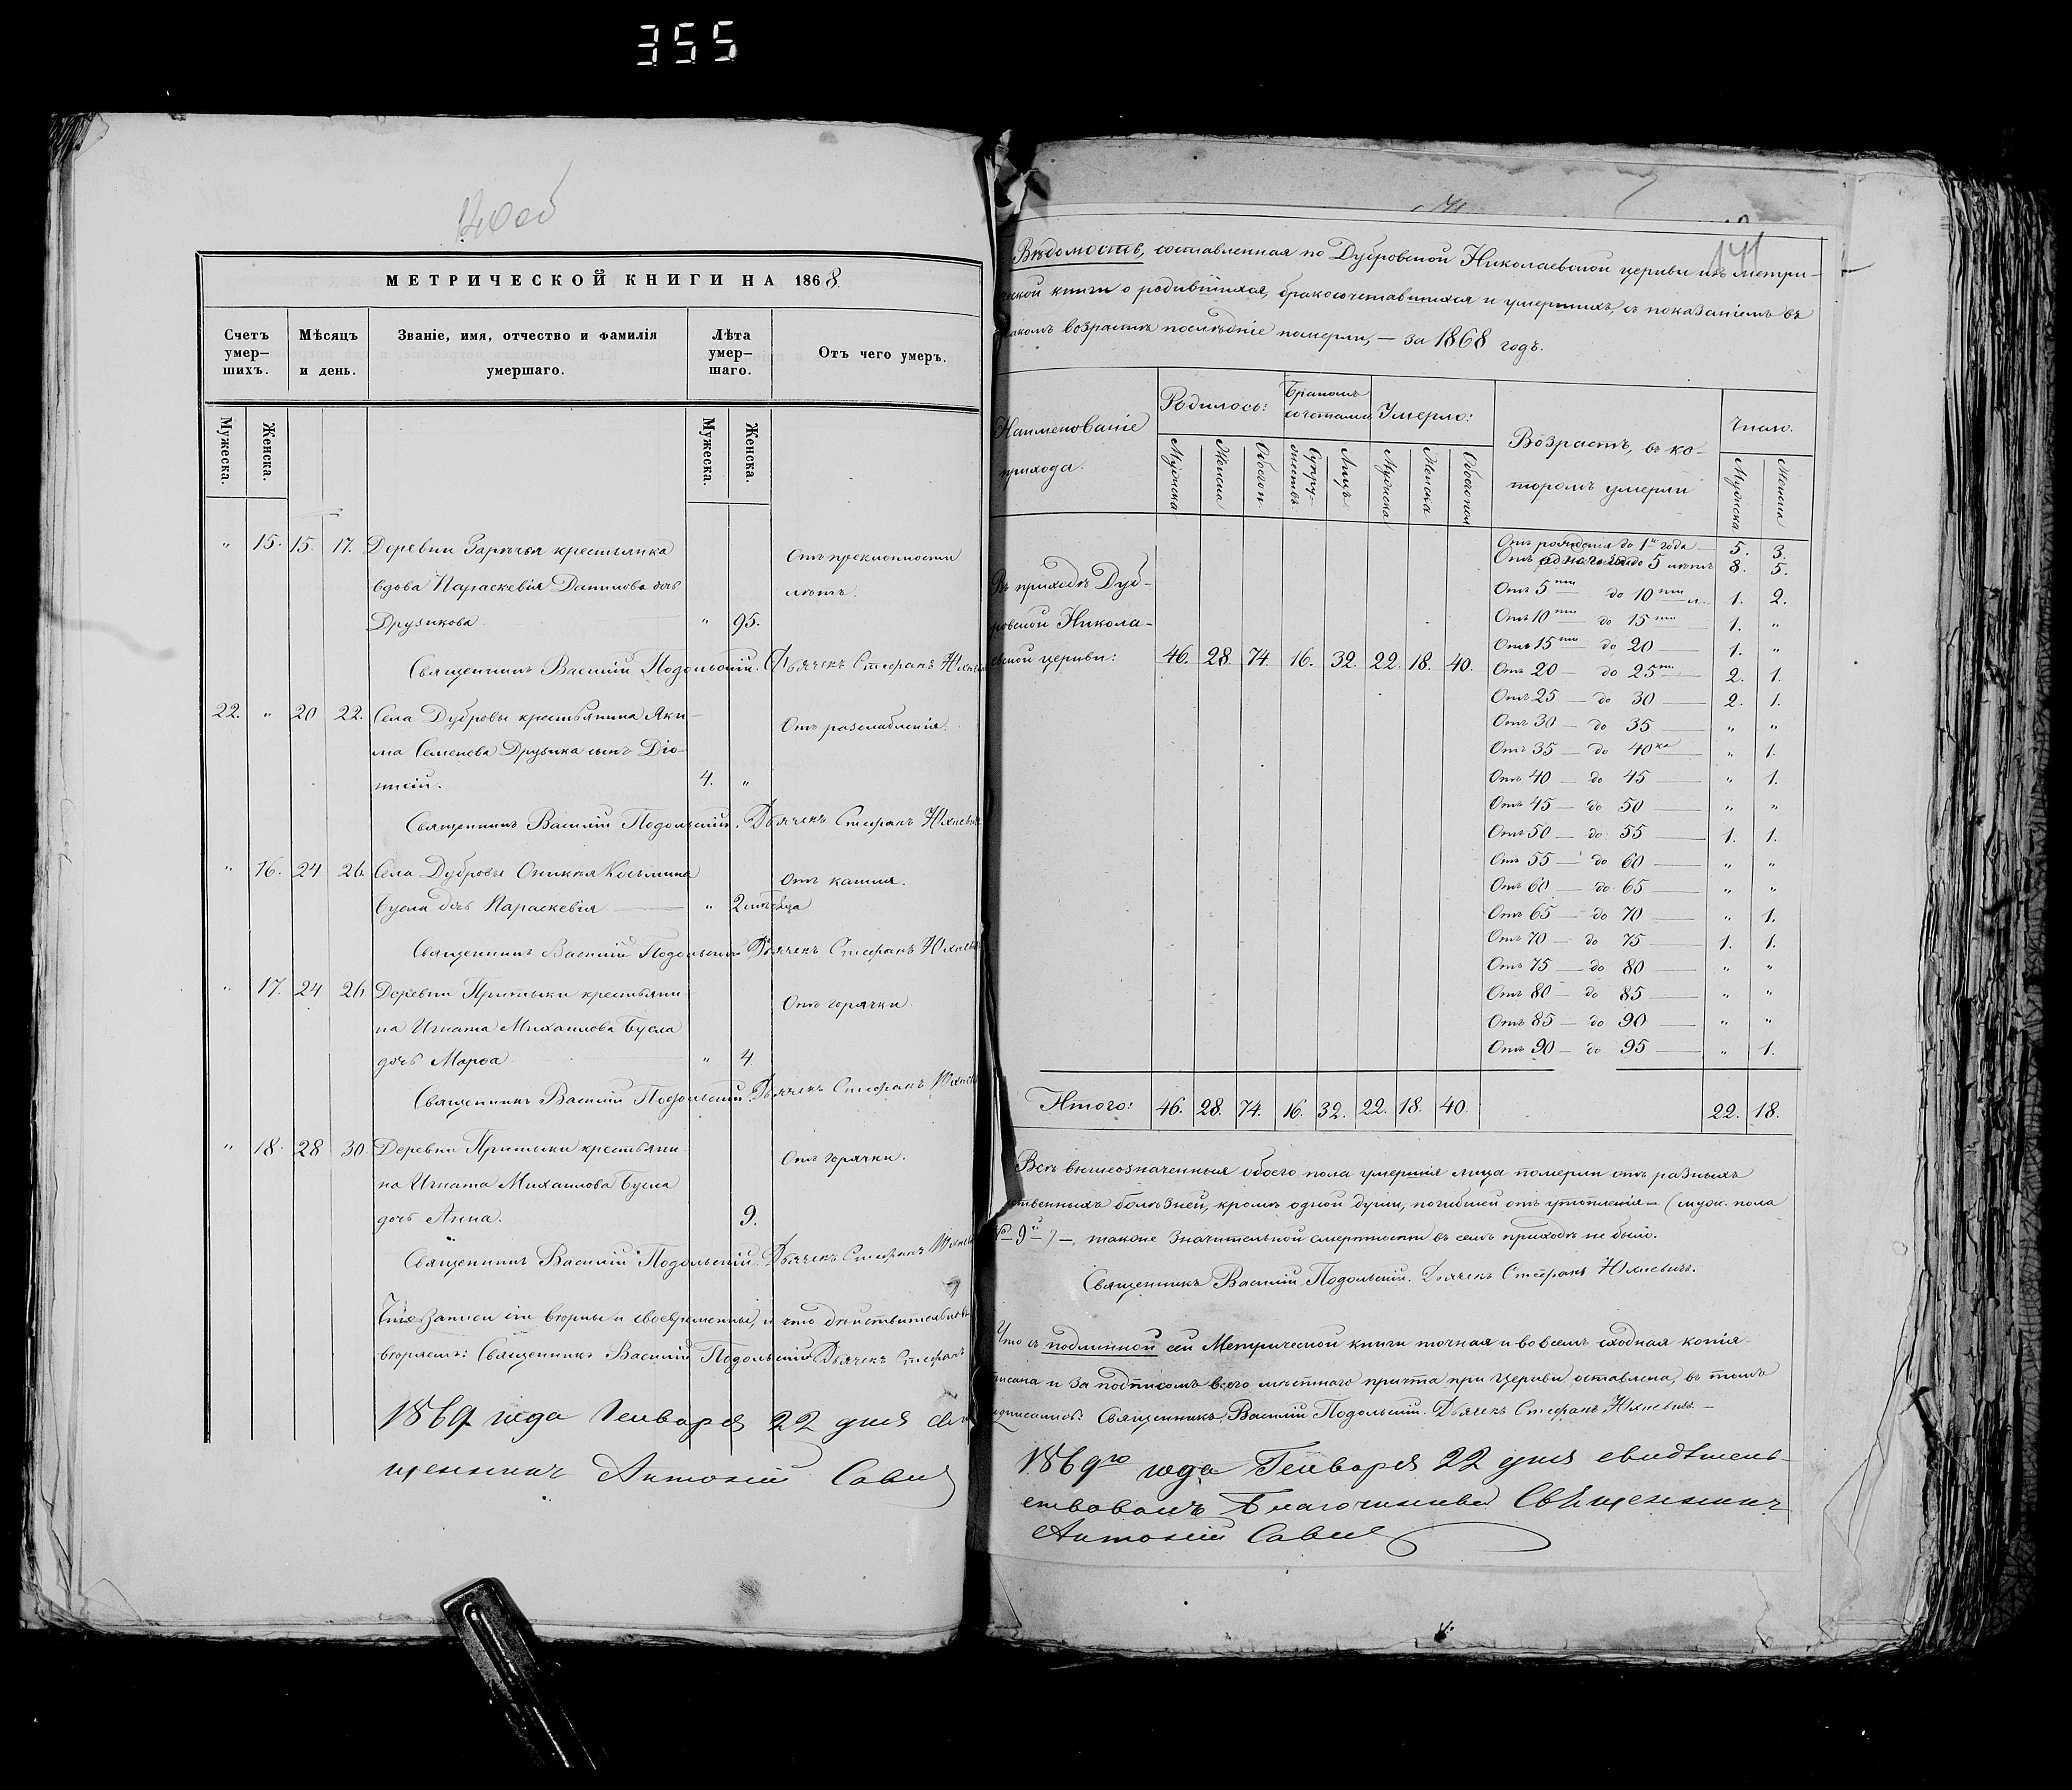 355
МЕТРИЧЕСКОЙ КНИГИ НА 1868.
Счетъ умер-шихъ. Мѣсяцъ и день. Званіе, имя, отчество и фамилія умершаго. Лѣта умер-шаго. Отъ чего умеръ.
Мужеска. Женска. Мужеска. Женска.
" 15. 15. 17. Деревни Зарѣчья крестьянка Отъ преклонности
вдова Параскевія Данилова дочь лѣтъ.
Друзикова " 95.
Священникъ Василій Подольскій. Дьячекъ Стефанъ
22. " 20 22. Села Дубровы крестьянина Яки- Отъ разслабленія.
ма Семенова Друзика сынъ Діо-
нисій. 4. "
Священникъ Василій Подольскій. Дьячекъ Стефанъ
" 16. 24 26. Села Дубровы Отъ кашля.
Бусла дочь Параскевія " 2
Священникъ Василій Подольскій Дьячекъ Стефанъ
" 17. 24 26. Деревни Притыки крестьяни- Отъ горячки
на Игната Михаилова Бусла
дочь Марѳа " 4
Священникъ Василій Подольскій. Дьячекъ Стефанъ
" 18. 28 30. Деревни Притыки крестьяни- Отъ горячки.
на Игната Михаилова Бусла
дочь Анна. 9.
Священникъ Василій Подольскій. Дьячекъ Стефанъ
записи и что дѣйствительно
Священникъ Василій Подольскій Дьячекъ Стефанъ
1869 года Генваря 22 дня
щенникъ Антоній
141
Вѣдомость, составленная по Дубровской Николаевской церкви изъ метри-
ческой книги о родившихся, бракосочетавшихся и умершихъ, съ показаніемъ въ
какомъ возрастѣ послѣдніе померли, — за 1868 годъ.
Наименованіе прихода. Родилось: Бракомъ сочеталось Умерло: Возрастъ, въ ко-торомъ умерли Число.
Мужска Женска Обоего п. Супру-жествъ Лицъ Мужска Женска Обоего пола Мужска Женска
Отъ рожденія до 1го года 5. 3.
Отъ одного года до 5 лѣтъ 8. 5.
Въ приходѣ Дуб- Отъ 5ти до 10ти л. 1. 2.
ровской Никола- Отъ 10ти до 15ти 1. "
Отъ 15ти до 20 1. "
евской церкви: 46. 28. 74. 16. 32. 22. 18. 40.
Отъ 20 — до 25ти 2. 1.
Отъ 25 — до 30 2. 1.
Отъ 30 — до 35 " "
Отъ 35 — до 40ка " 1.
Отъ 40 — до 45 " 1.
Отъ 45 — до 50 " "
Отъ 50 — до 55 1. 1.
Отъ 55 — до 60 " "
Отъ 60 — до 65 " "
Отъ 65 — до 70 " 1.
Отъ 70 — до 75 1. 1.
Отъ 75 — до 80 " "
Отъ 80 — до 85 " "
Отъ 85 — до 90 " "
Отъ 90 — до 95 " 1.
Итого: 46. 28. 74. 16. 32. 22. 18. 40. 22. 18.
Всѣ вышеозначенныя обоего пола умершія лица померли отъ разныхъ
ственныхъ болѣзней, кромѣ одной души, погибшей отъ утопленія — (муж. пола
№ 9й) —, також значительной смертности въ семъ приходѣ не было.
Священникъ Василій Подольскій. Дьячекъ Стефанъ Юхневичъ.
Что съ подлинной сей Метрической книги точная и вовсемъ сходная копія
писана и за подписомъ всего мѣстнаго причта при церкви оставлена, въ томъ
Священникъ Василій Подольскій. Дьячекъ Стефанъ Юхневичъ. —
1869го года Генваря 22 дня свидѣтель-
ствовалъ Благочинный Священникъ
Антоній